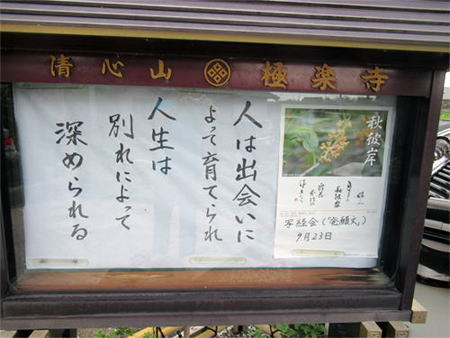 清心山 極楽寺
人は出会いに
よって育てられ
人生は
別れによって
深められる
秋彼岸
写経会(発願文)
9月23日